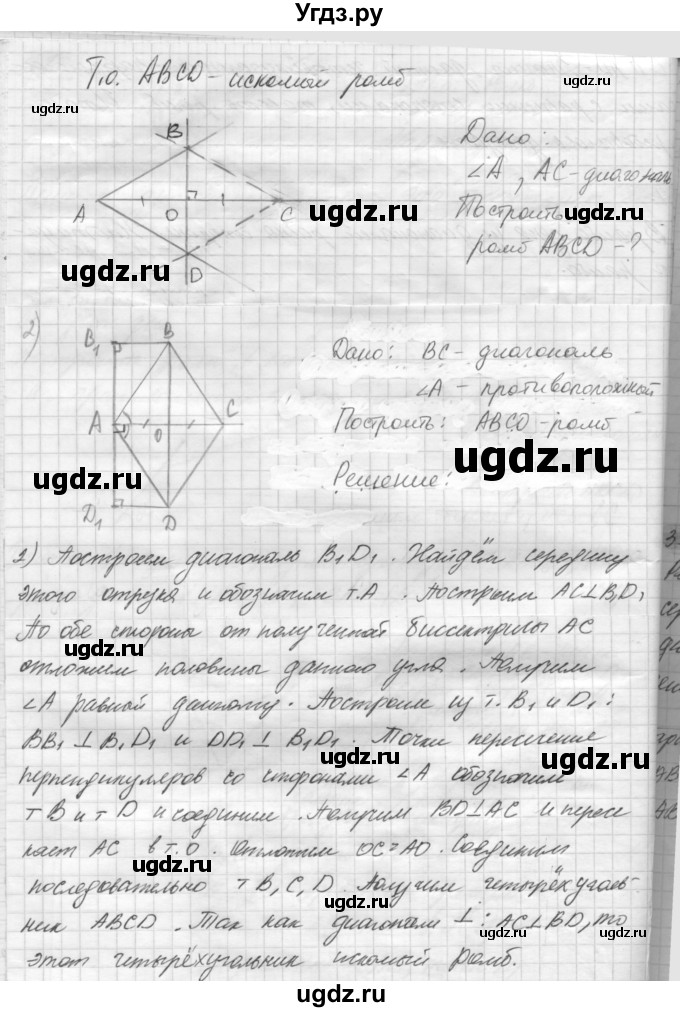 Угдз.ру
Т.о. ABCD - искомый ромб
Дано:
∠A, AC - диагональ
Построить
ромб ABCD - ?
B
A
O
C
D
2)
B₁ B
A O C
D₁ D
Дано: BC - диагональ
∠A - противоположной
Построить: ABCD - ромб
Решение:
1) Построем диагональ B₁D₁. Найдём середину
этого отрезка и обозначим т.A. Построим AC⊥B₁D₁
По обе стороны от полученной биссектрисы AC
отложем половины данного угла. Получим
∠A равный данному. Построим из т. B₁ и D₁:
BB₁ ⊥ B₁D₁ и DD₁ ⊥ B₁D₁. Точки пересечение
перпендикуляров со сторонами ∠A обозначим
т B и т D и соединим. Получим BD⊥AC и пересе
кает AC в т.O. Отложим OC=AO. Соединим
последовательно т B, C, D. Получим четырёхуголь-
ник ABCD. Так как диагонали ⊥: AC⊥BD, то
этот четырёхугольник искомый ромб.
ugdz.ru